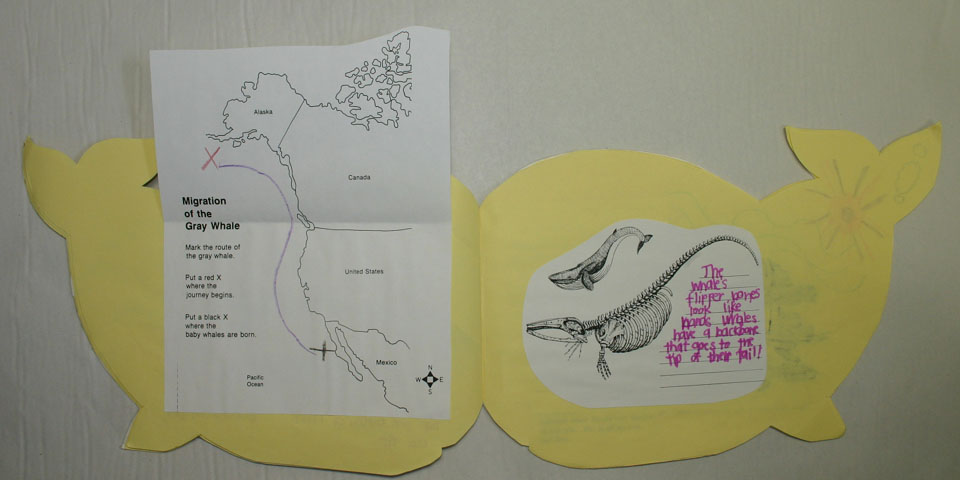 Alaska
Canada
Migration
of the
Gray Whale
Mark the route of
the gray whale.
Put a red X
where the
journey begins.
Put a black X
where the
baby whales are born.
United States
Mexico
Pacific
Ocean
N
W E
S
The
whale's
flipper bones
look like
hands Whales
have a backbone
that goes to the
tip of their tail!